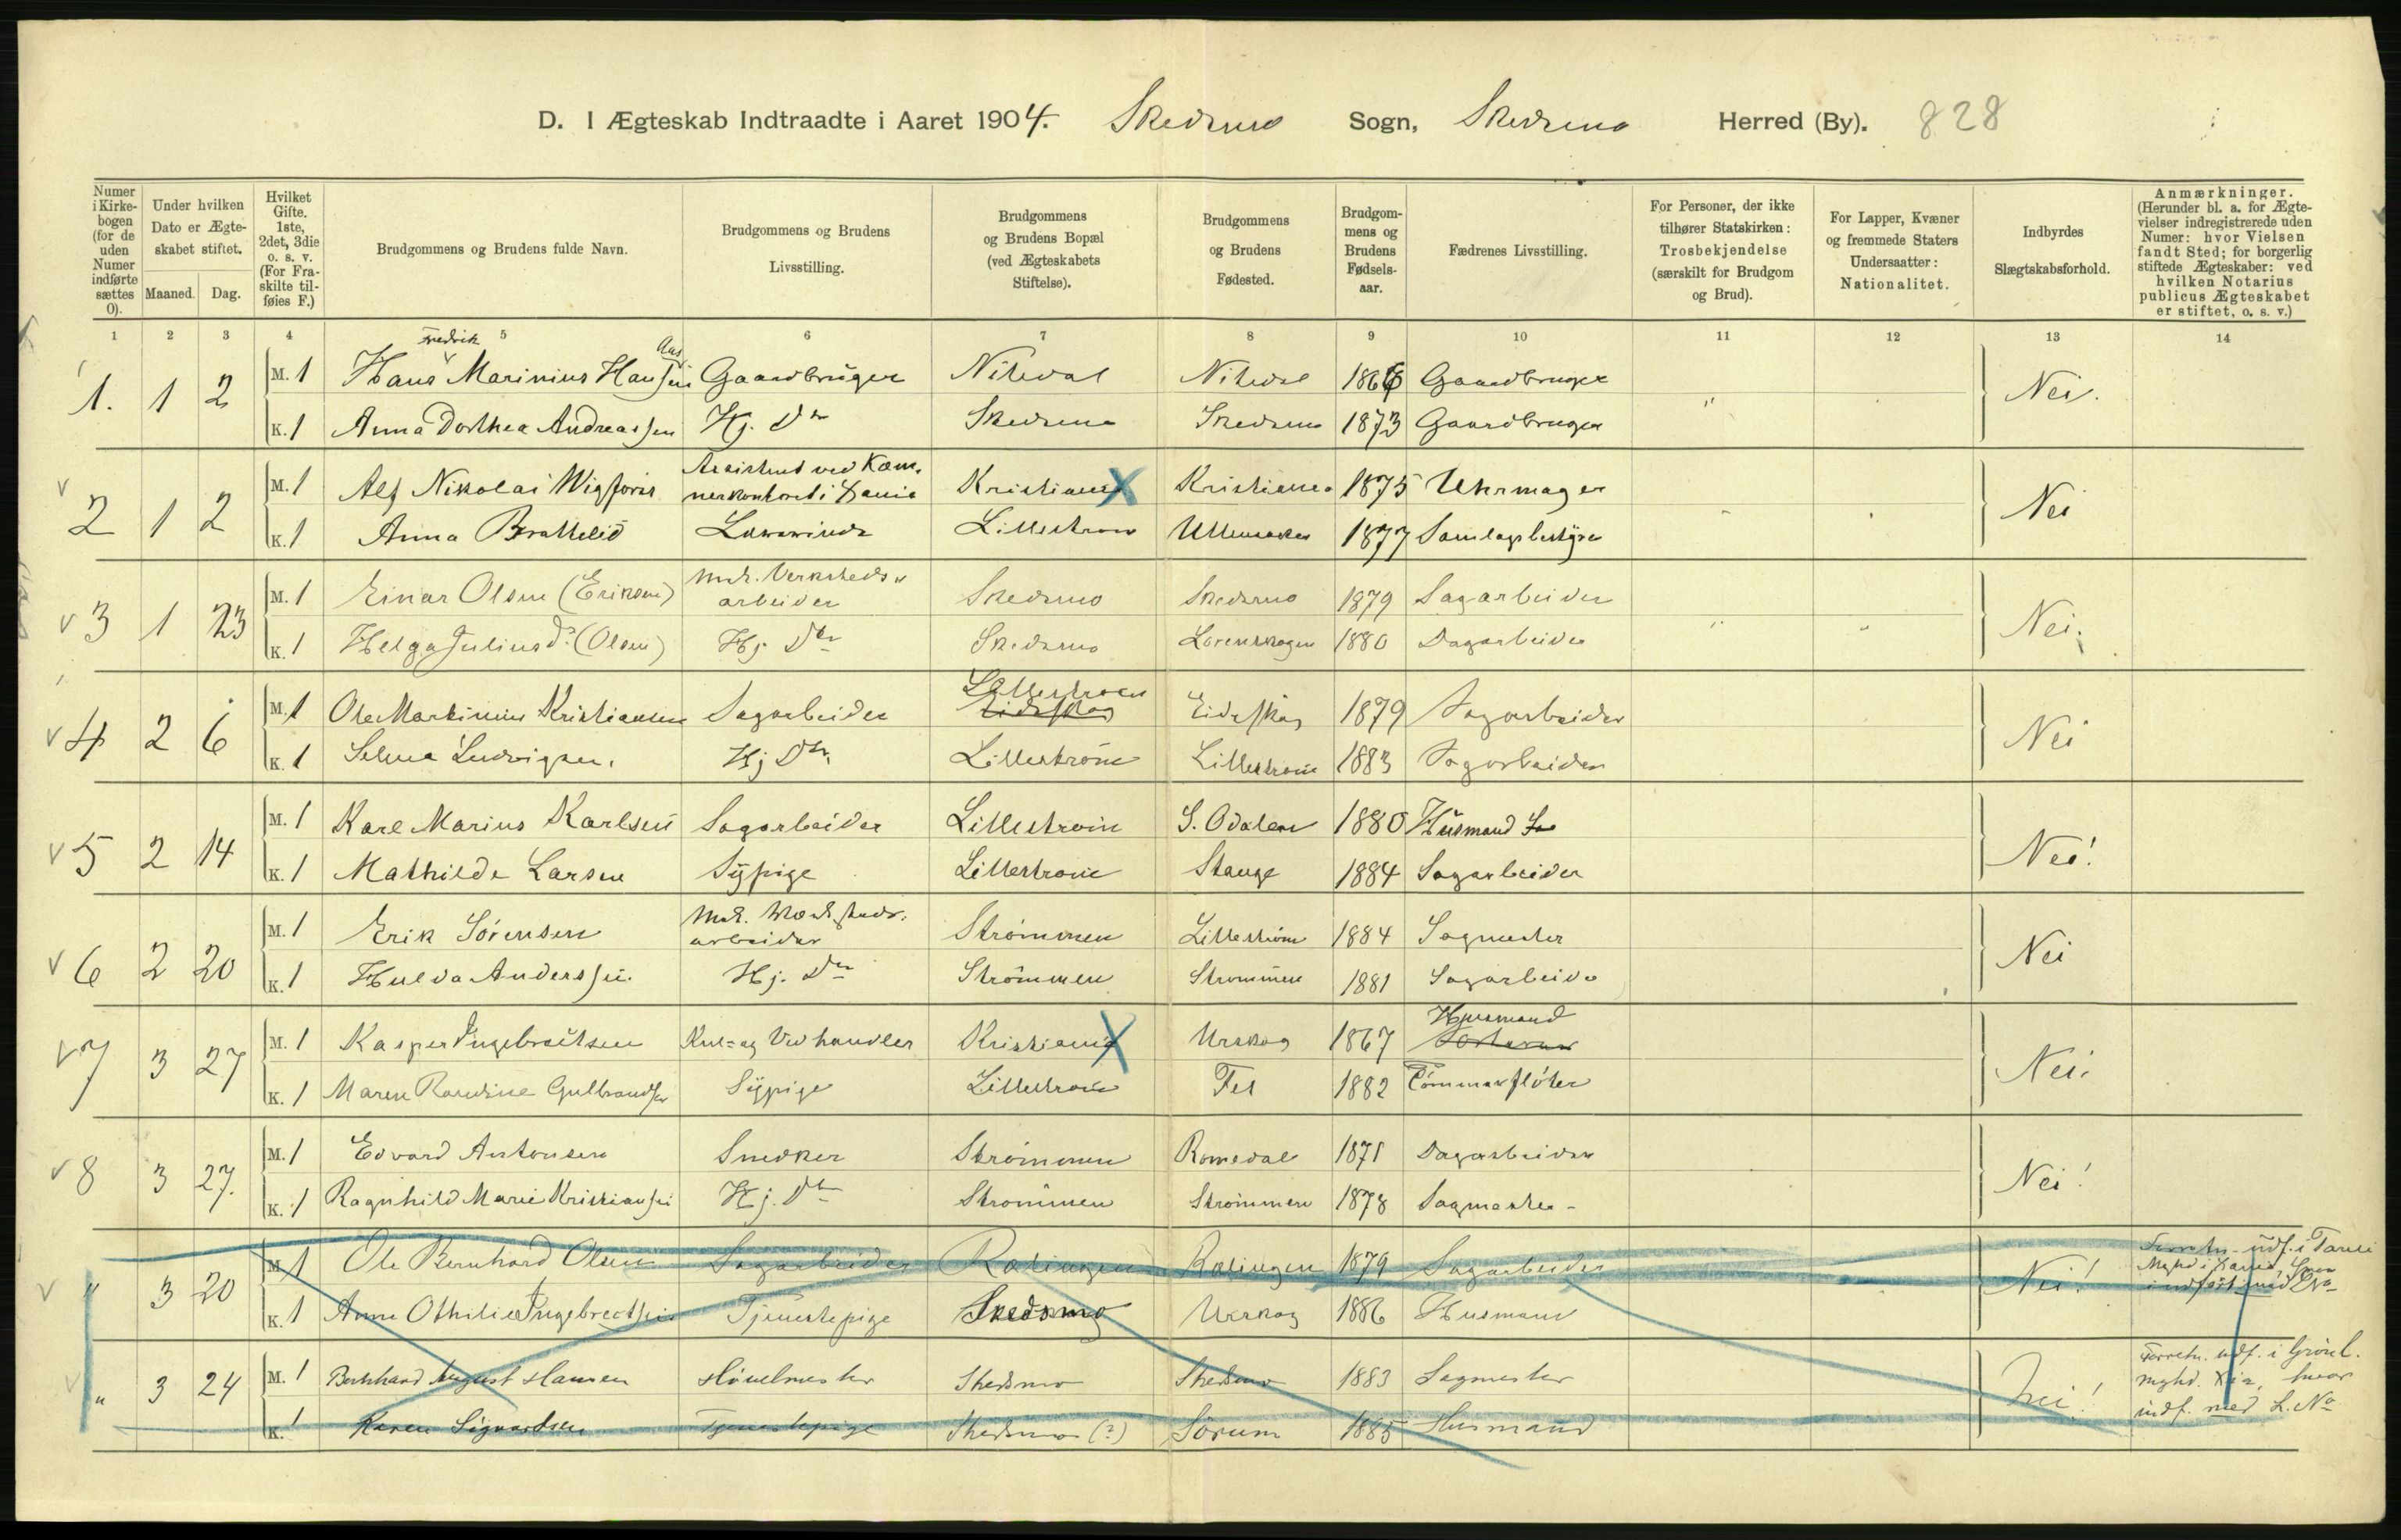 D. I Ægteskab Indtraadte i Aaret 1904. Skedsmo Sogn, Skedsmo Herred (By). 828
Numer i Kirkebogen (for de uden Numer indførte sættes 0).
Under hvilken Dato er Ægteskabet stiftet.
Maaned. Dag.
Hvilket Gifte. 1ste, 2det, 3die o. s. v. (For Fraskilte tilføies F.)
Brudgommens og Brudens fulde Navn.
Brudgommens og Brudens Livsstilling.
Brudgommens og Brudens Bopæl (ved Ægteskabets Stiftelse).
Brudgommens og Brudens Fødested.
Brudgommens og Brudens Fødselsaar.
Fædrenes Livsstilling.
For Personer, der ikke tilhører Statskirken: Trosbekjendelse (særskilt for Brudgom og Brud).
For Lapper, Kvæner og fremmede Staters Undersaatter: Nationalitet.
Indbyrdes Slægtskabsforhold.
Anmærkninger. (Herunder bl. a. for Ægtevielser indregistrerede uden Numer: hvor Vielsen fandt Sted; for borgerlig stiftede Ægteskaber: ved hvilken Notarius publicus Ægteskabet er stiftet, o. s. v.)
1 2 3 4 5 6 7 8 9 10 11 12 13 14
Fredrik Aas
1. 1 2 M. 1 Hans Marinius Hansen Gaardbruger Nitedal Nitedal 1866 Gaardbruger Nei.
K. 1 Anna Dorthea Andreassen Hj. Dtr Skedsmo Skedsmo 1873 Gaardbruger
Assistent ved Kæm-
2 1 2 M. 1 Alf Nikolai Wigforss nerkontoret i Xania Kristiania X Kristiania 1875 Uhrmager Nei
K. 1 Anna Brattelid Lillestrøm Ullensaker 1877 Samlagsbestyrer
Mek. Verksteds-
3 1 23 M. 1 Einar Olsen (Eriksen) arbeider Skedsmo Skedsmo 1879 Sagarbeider Nei.
K. 1 Helga Juliusd. (Olsen) Hj. Dtr Skedsmo Lørenskogen 1880 Dagarbeider
Lillestrøm
4 2 6 M. 1 Ole Martinius Kristiansen Sagarbeider Eidskog Eidskog 1879 Sagarbeider Nei
K. 1 Selma Ludvigsen. Hj. Dtr. Lillestrøm Lillestrøm 1883 Sagarbeider
5 2 14 M. 1 Karl Marius Karlsen Sagarbeider Lillestrøm S. Odalen 1880 Husmand Nei!
K. 1 Mathilde Larsen Sypige Lillestrøm Stange 1884 Sagarbeider
Mek. Værksteds-
6 2 20 M. 1 Erik Sørensen arbeider Strømmen Lillestrøm 1884 Sagmester Nei
K. 1 Hulda Anderssen Hj. Dtr Strømmen Strømmen 1881 Sagarbeider
Husmand
7 3 27 M. 1 Kasper Ingebretsen Kul- og Vedhandler Kristiania X Urskog 1867 Nei.
K. 1 Maren Randine Gulbrandsen Sypige Lillestrøm Fet 1882 Tømmerfløter
8 3 27. M. 1 Edvard Antonsen Snedker Strømmen Romedal 1871 Dagarbeider Nei!
K. 1 Ragnhild Marie Kristiansen Hj. Dtr Strømmen Strømmen 1878 Sagmester -
" 3 20 M. 1 Ole Bernhard Olsen Sagarbeider Rælingen Rælingen 1879 Sagarbeider Nei! Forretn. udf. i
K. 1 Anne Othilie Ingebretsen Tjenestepige Skedsmo Urskog 1886 Husmand indført med No
" 3 24 M. 1 Bernhard August Hansen Høvelmester Skedsmo Skedsmo 1883 Sagmester Nei! Forretn. udf. i Grønl. mghd. Xia, hvor
K. 1 Karen Sigvardsen Tjenestepige Skedsmo (?) Sørum 1885 Husmand indf. med L. No